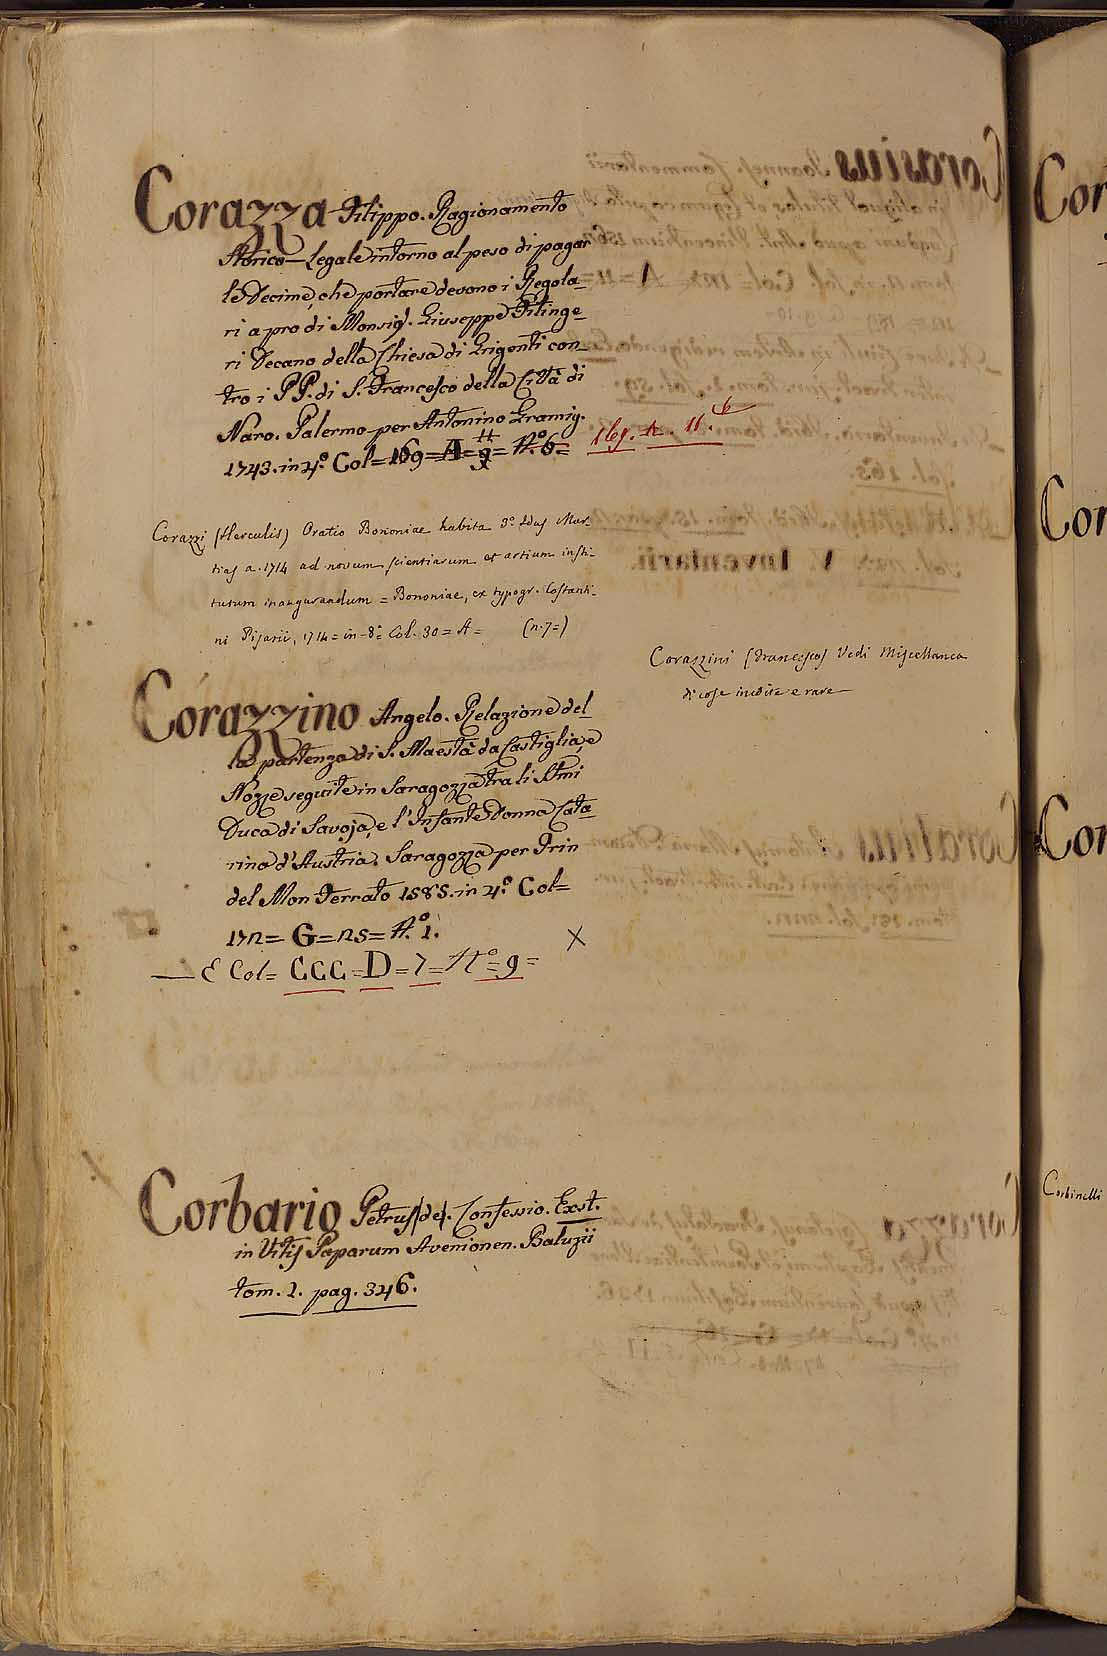 Corazza Filippo. Ragionamento
Storico-Legale intorno al peso di pagar
le Decime, che portare devono i Regola-
ri a pro di Monsig. Giuseppe Filinge-
ri Decano della Chiesa di Grigenti con-
tro i PP. di S. Francesco della Città di
Naro. Palermo per Antonino Gramig.
1743. in 4.° Col= 169=A= 11 9= N.° 6=
1leg. A. 11. 6
Corazzi (Herculis) Oratio Bononiae habita 3.° Idus Mar-
tias a. 1714 ad novum scientiarum et artium insti-
tutum inaugurandum = Bononiae, ex typogr. Costanti-
ni Pisarii, 1714 = in-8.° Col. 30 = A = (n. 7=)
Corazzini (Francesco) Vedi Miscellanea
di cose inedite e rare
Corazzino Angelo. Relazione del-
la partenza di S. Maestà da Castiglia, e
Nozze seguite in Saragozza tra li Smi
Duca di Savoja, e l'Infante Donna Cata
rina d'Austria. Saragozza per Irin
del Mon Ferrato 1585. in 4.° Col=
172= G=25= N.° 1.
X
— E Col= CCC=D=7=N.°=9=
Corbario Petrus (de). Confessio. Exst.
in Vitis Paparum Avenionen. Baluzii
tom. 2. pag. 346.
Cor
Cor
Cor
Corbinelli